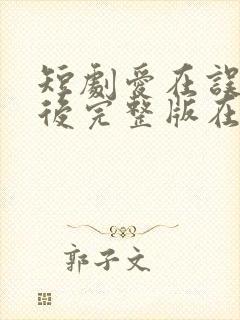 短劇愛在誤
後完整版在
郭子文